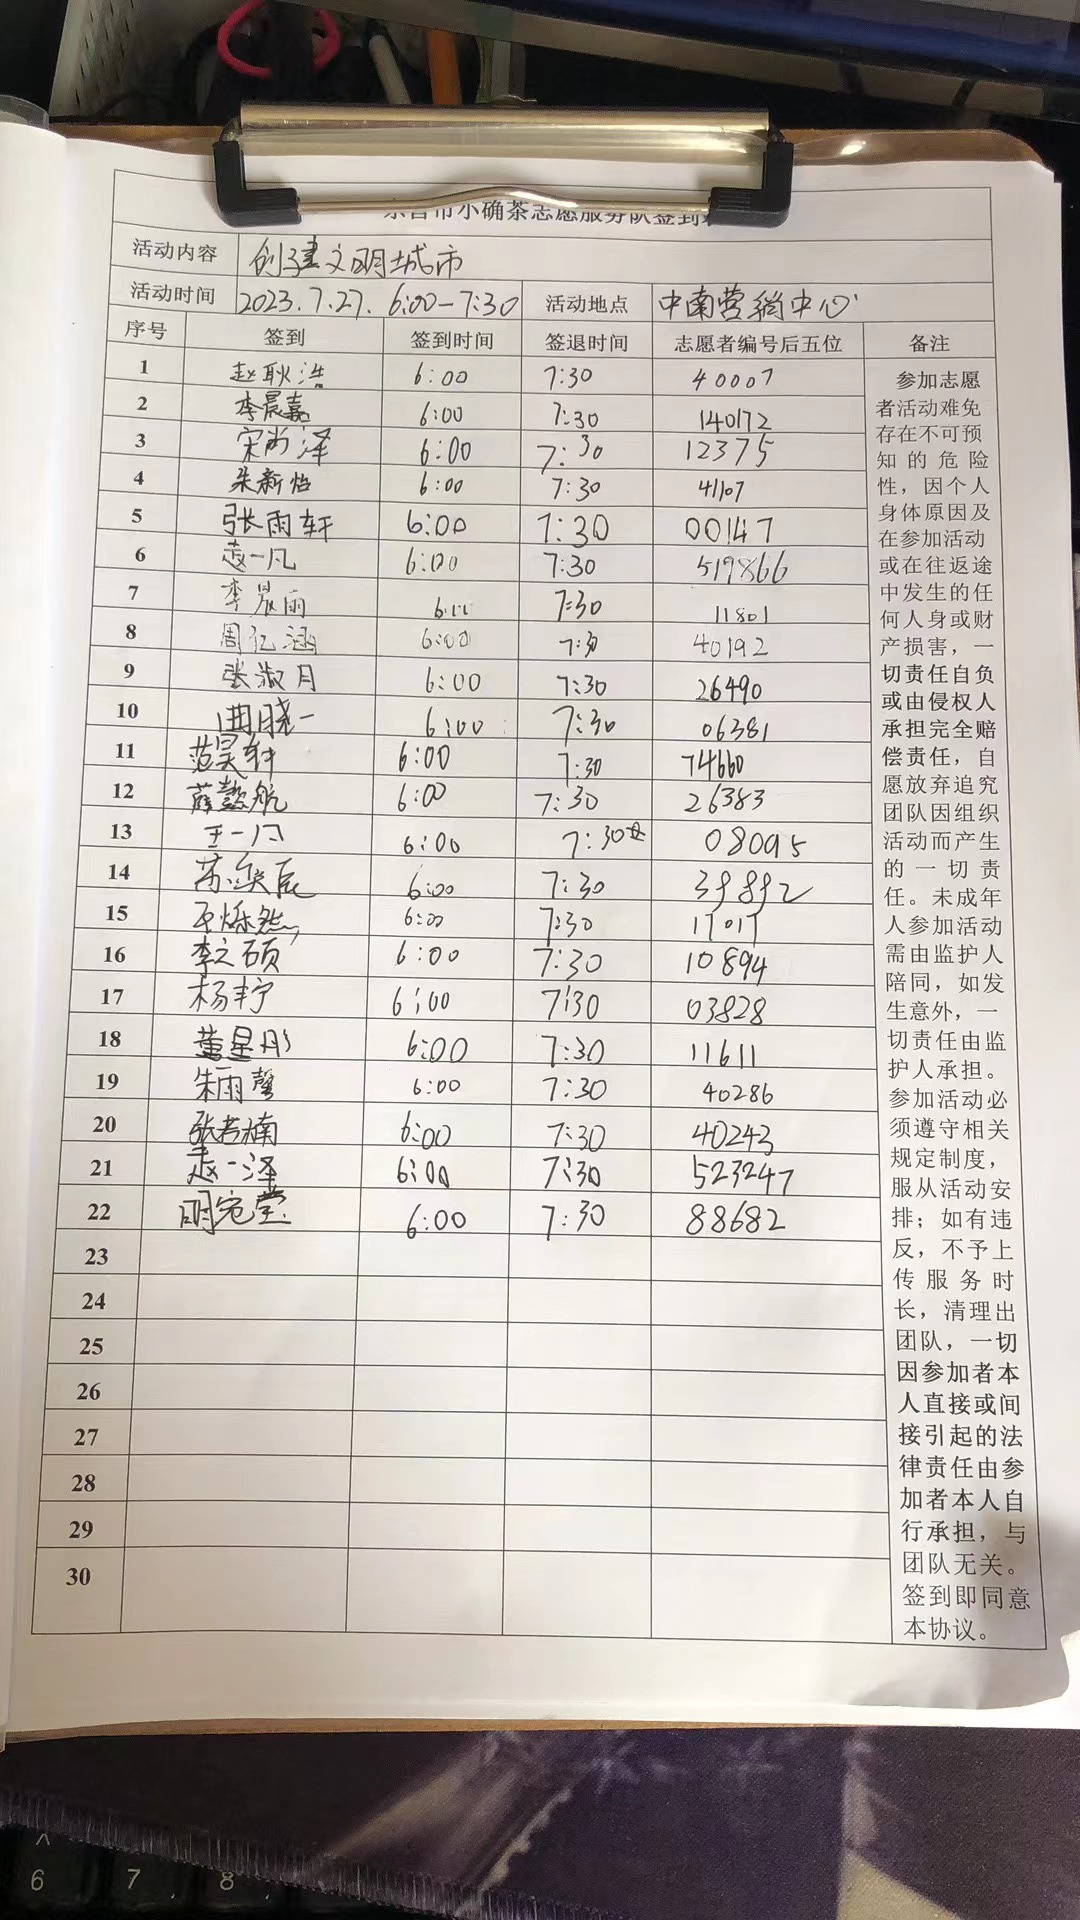 东营市小确茶志愿服务队签到表
活动内容 创建文明城市
活动时间 2023.7.27. 6:00-7:30 活动地点 中南营销中心
序号 签到 签到时间 签退时间 志愿者编号后五位 备注
1 赵耿浩 6:00 7:30 40007
2 李晨嘉 6:00 7:30 140172
3 宋尚泽 6:00 7:30 12375
4 朱新怡 6:00 7:30 41107
5 张雨轩 6:00 7:30 00147
6 赵一凡 6:00 7:30 519866
7 李晨雨 6:00 7:30 11801
8 周亿涵 6:00 7:30 40192
9 张淑月 6:00 7:30 26490
10 曲晓一 6:00 7:30 06381
11 范昊轩 6:00 7:30 74660
12 薛懿航 6:00 7:30 26383
13 王一 6:00 7:30 08095
14 苏奕辰 6:00 7:30 39892
15 烁然 6:00 7:30 17017
16 李之硕 6:00 7:30 10894
17 杨丰宁 6:00 7:30 03828
18 董星彤 6:00 7:30 11611
19 朱雨馨 6:00 7:30 40286
20 张若楠 6:00 7:30 40243
21 赵一泽 6:00 7:30 523247
22 明宛莹 6:00 7:30 88682
23
24
25
26
27
28
29
30
参加志愿
者活动难免
存在不可预
知的危险
性，因个人
身体原因及
在参加活动
或在往返途
中发生的任
何人身或财
产损害，一
切责任自负
或由侵权人
承担完全赔
偿责任，自
愿放弃追究
团队因组织
活动而产生
的一切责
任。未成年
人参加活动
需由监护人
陪同，如发
生意外，一
切责任由监
护人承担。
参加活动必
须遵守相关
规定制度，
服从活动安
排；如有违
反，不予上
传服务时
长，清理出
团队，一切
因参加者本
人直接或间
接引起的法
律责任由参
加者本人自
行承担，与
团队无关。
签到即同意
本协议。
6 7 8